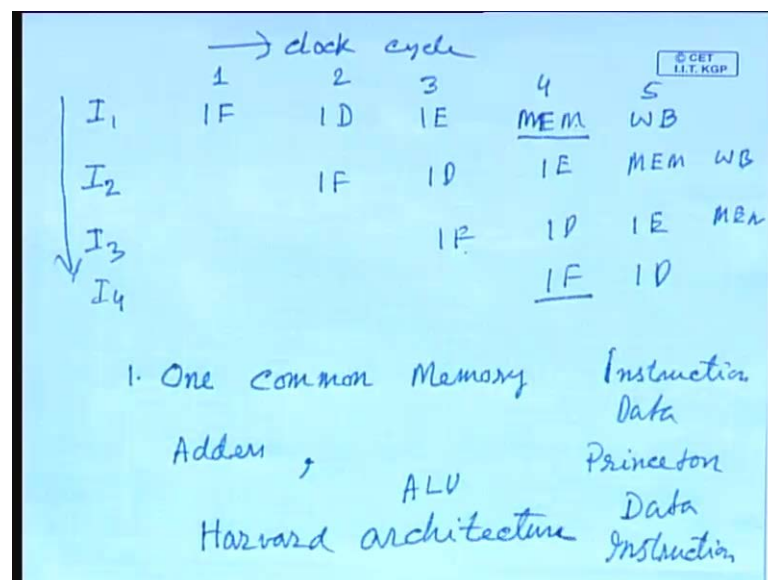 → clock cycle
© CET
I.I.T. KGP
1 2 3 4 5
I1 IF ID IE MEM WB
I2 IF ID IE MEM WB
I3 IF ID IE MEM
I4 IF ID
1. One common Memory Instruction
Data
Adders, Princeton
ALU Data
Harvard architecture Instruction